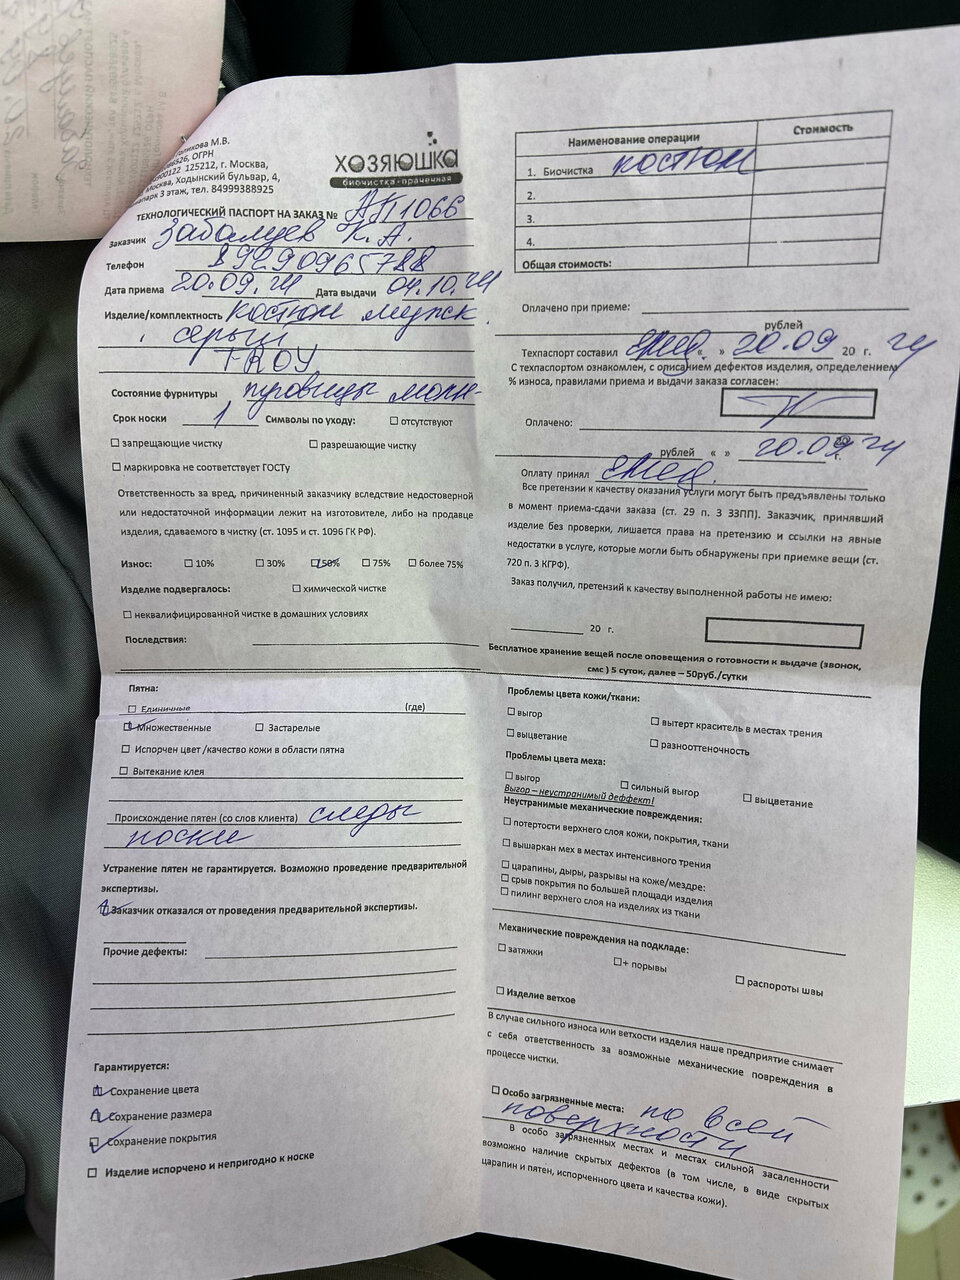 М.В.
ОГРН
125212, г. Москва,
Москва, Ходынский бульвар, 4,
3 этаж, тел. 84999388925
ХОЗЯЮШКА
биочистка-прачечная
ТЕХНОЛОГИЧЕСКИЙ ПАСПОРТ НА ЗАКАЗ № АП1066
Заказчик Забалуев К.А.
Телефон 89290965788
Дата приема 20.09.24 Дата выдачи 04.10.24
Изделие/комплектность костюм мужск.
серый
TROY
Состояние фурнитуры пуговицы молн-
Срок носки 1 Символы по уходу: отсутствуют
запрещающие чистку разрешающие чистку
маркировка не соответствует ГОСТу
Ответственность за вред, причиненный заказчику вследствие недостоверной
или недостаточной информации лежит на изготовителе, либо на продавце
изделия, сдаваемого в чистку (ст. 1095 и ст. 1096 ГК РФ).
Износ: 10% 30% 50% 75% более 75%
Изделие подвергалось: химической чистке
неквалифицированной чистке в домашних условиях
Последствия:
Пятна:
Единичные (где)
Множественные Застарелые
Испорчен цвет /качество кожи в области пятна
Вытекание клея
Происхождение пятен (со слов клиента) следы
носки
Устранение пятен не гарантируется. Возможно проведение предварительной
экспертизы.
Заказчик отказался от проведения предварительной экспертизы.
Прочие дефекты:
Гарантируется:
Сохранение цвета
Сохранение размера
Сохранение покрытия
Изделие испорчено и непригодно к носке
Наименование операции Стоимость
1. Биочистка костюм
2.
3.
4.
Общая стоимость:
Оплачено при приеме:
рублей
Техпаспорт составил « » 20.09 20 г. 24
С техпаспортом ознакомлен, с описанием дефектов изделия, определением
% износа, правилами приема и выдачи заказа согласен:
Оплачено:
рублей « » 20.09 г. 24
Оплату принял
Все претензии к качеству оказания услуги могут быть предъявлены только
в момент приема-сдачи заказа (ст. 29 п. 3 ЗЗПП). Заказчик, принявший
изделие без проверки, лишается права на претензию и ссылки на явные
недостатки в услуге, которые могли быть обнаружены при приемке вещи (ст.
720 п. 3 КГРФ).
Заказ получил, претензий к качеству выполненной работы не имею:
20 г.
Бесплатное хранение вещей после оповещения о готовности к выдаче (звонок,
смс ) 5 суток, далее – 50руб./сутки
Проблемы цвета кожи/ткани:
выгор вытерт краситель в местах трения
выцветание разнооттеночность
Проблемы цвета меха:
выгор сильный выгор выцветание
Выгор – неустранимый деффект!
Неустранимые механические повреждения:
потертости верхнего слоя кожи, покрытия, ткани
вышаркан мех в местах интенсивного трения
царапины, дыры, разрывы на коже/мездре:
срыв покрытия по большей площади изделия
пилинг верхнего слоя на изделиях из ткани
Механические повреждения на подкладе:
затяжки + порывы распороты швы
Изделие ветхое
В случае сильного износа или ветхости изделия наше предприятие снимает
с себя ответственность за возможные механические повреждения в
процессе чистки.
Особо загрязненные места: по всей
поверхности
В особо загрязненных местах и местах сильной засаленности
возможно наличие скрытых дефектов (в том числе, в виде скрытых
царапин и пятен, испорченного цвета и качества кожи).